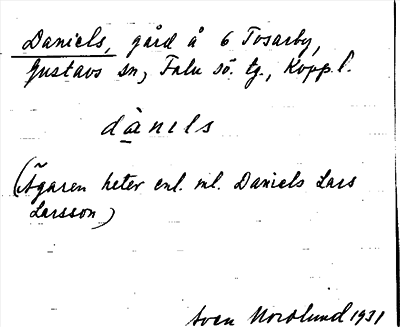 Daniels, gård å 6 Tosarby,
Gustavs sn, Falu sö. tg., Kopp.l.
dànils
(Ägaren heter enl. ml. Daniels Lars
Larsson)
Sven Nordlund 1931